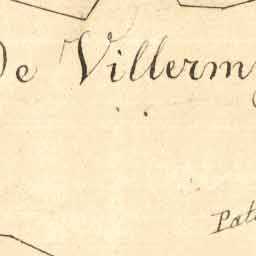 De Villerm
Pat